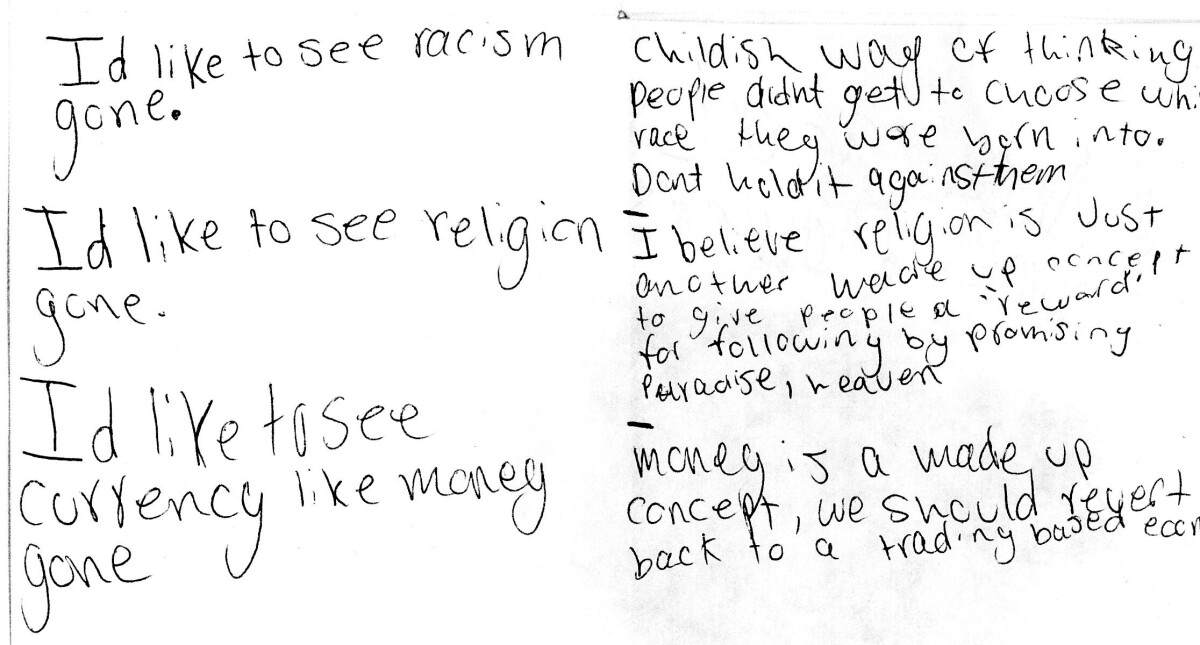 Id like to see racism
gone.
Id like to see religion
gone.
Id like to see
currency like money
gone
Childish way of thinking
people didnt get to choose
race they were born into.
Dont hold it against them
I believe religion is Just
another made up concept
to give people a "reward"
for following by promising
Paradise, heaven
money is a made up
concept, we should revert
back to a trading based